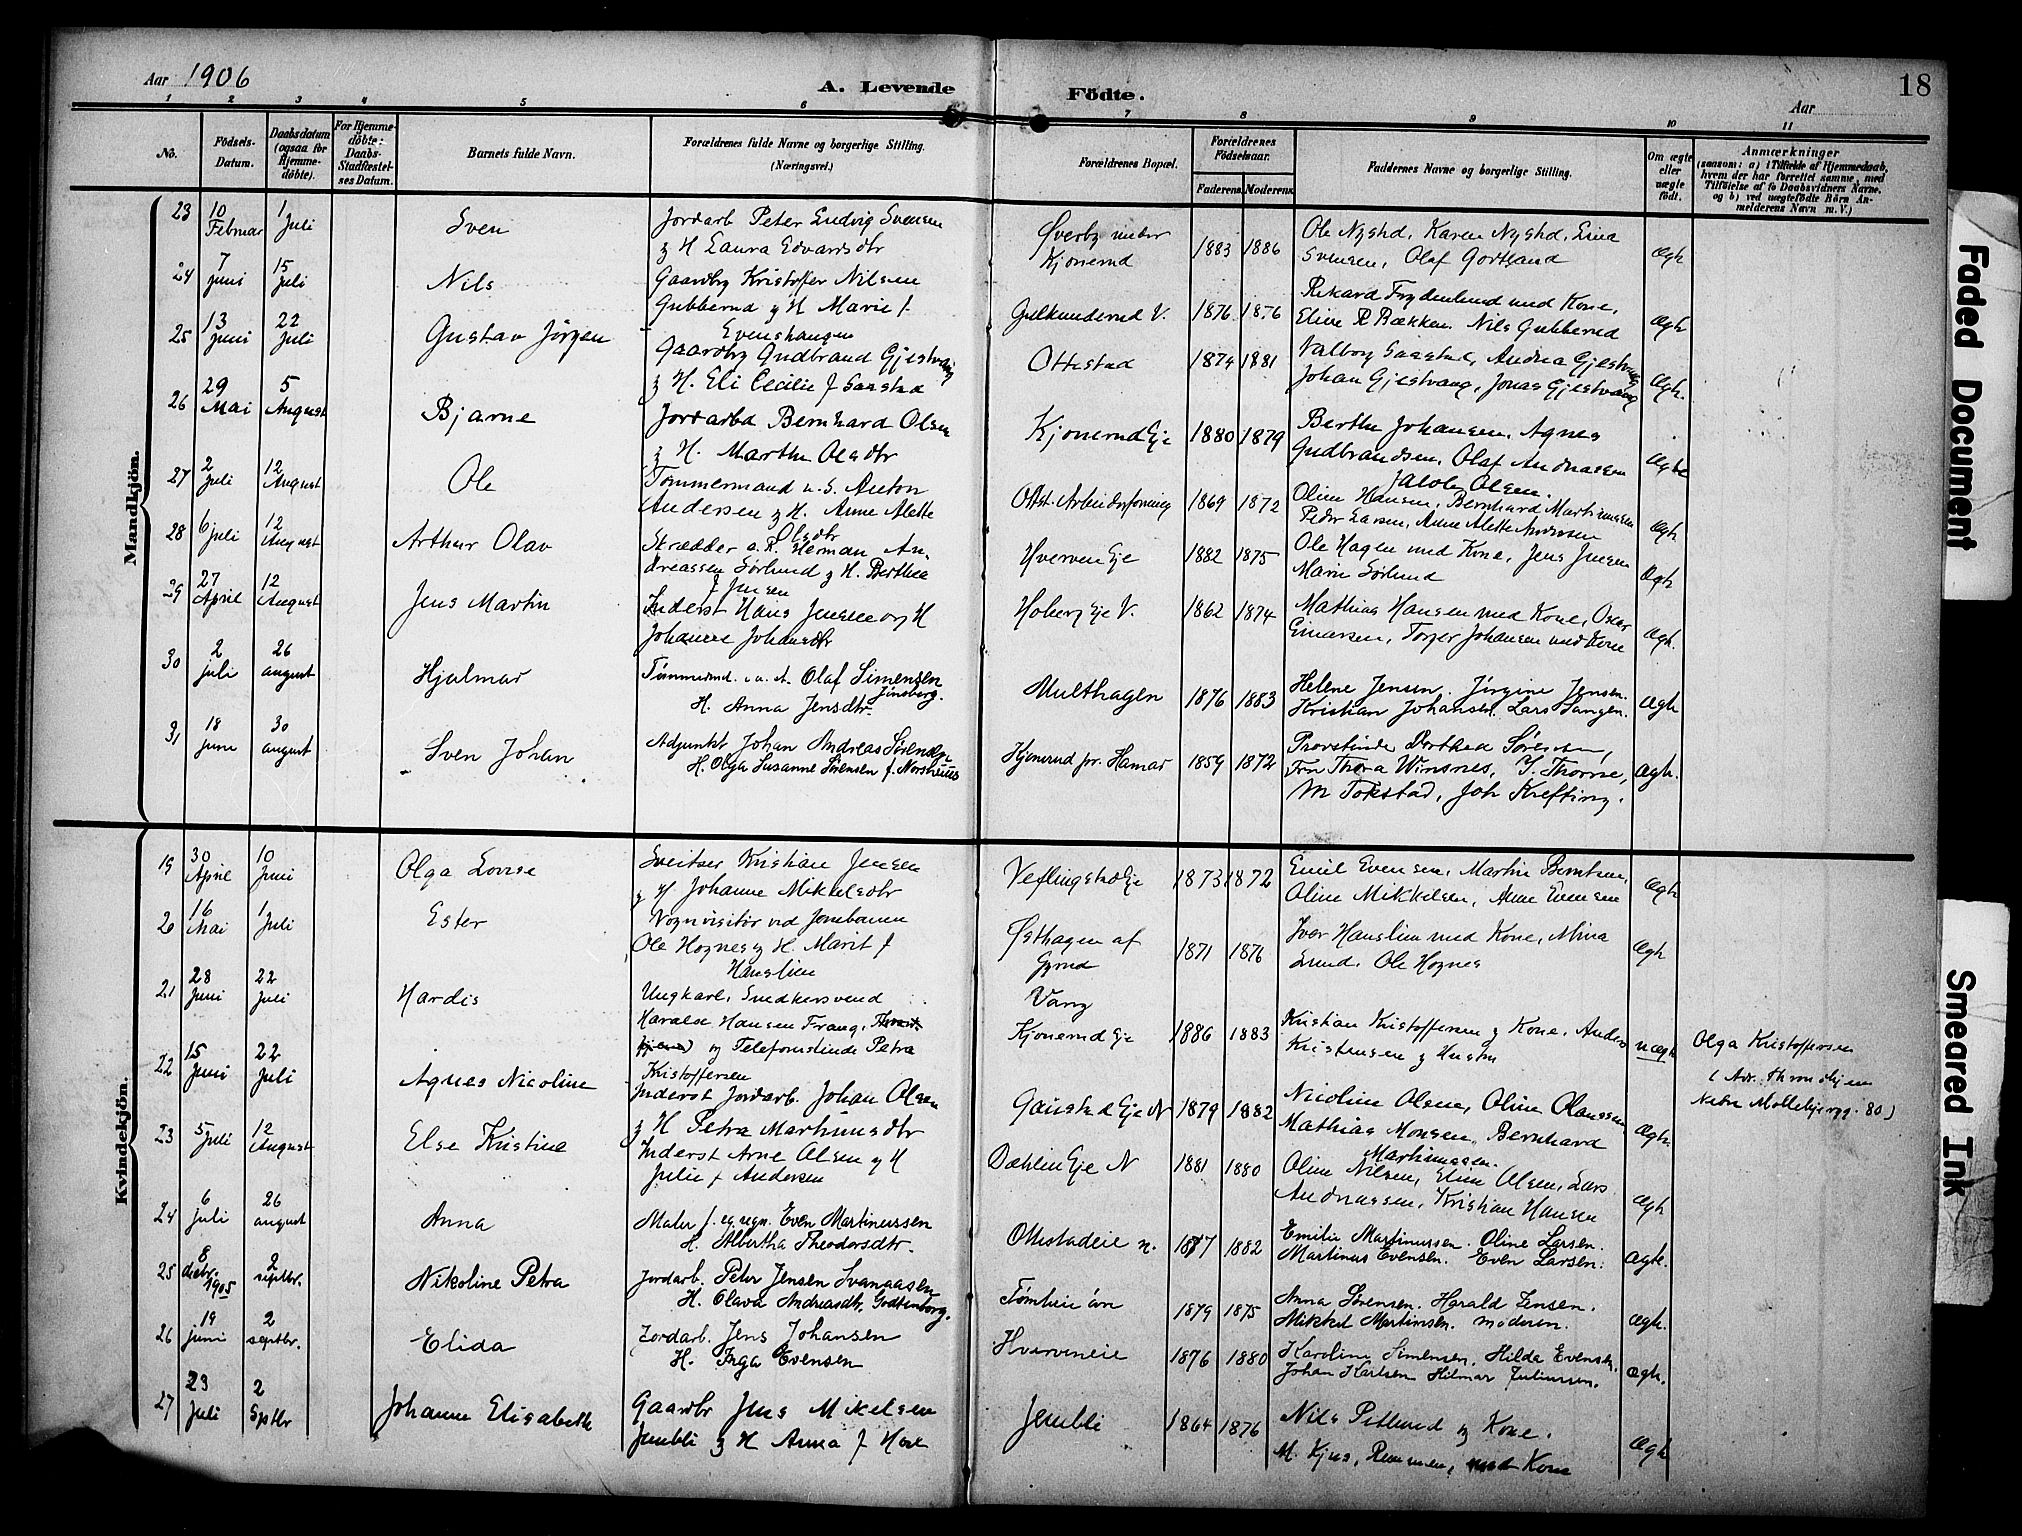 Aar 1906
A. Levende Födte.
Aar
18
1 2 3 4 5 6 7 8 9 10 11
No.
Födsels-Datum.
Daabsdatum (ogsaa for Hjemmedöbte).
For Hjemmedöbte: Daabs-Stadfæstelses Datum.
Barnets fulde Navn.
Forældrenes fulde Navne og borgerlige Stilling. (Næringsvei.)
Forældrenes Bopæl.
Forældrenes Födselsaar.
Faderens. Moderens.
Faddernes Navne og borgerlige Stilling.
Om ægte eller uægte födt.
Anmærkninger
(saasom: a) i Tilfælde af Hjemmedaab, hvem der har forrettet samme, med Tilföielse af to Daabsvidners Navne, og b) ved uægtefödte Börn Anmelderens Navn m. V.)
Mandkjön.
23 10 Februar 1 Juli Sven Jordarb Peter Ludvig Svensen
& H Laura Edvardsdtr Øverby under Kjonerud 1883 1886 Ole Nystad, Karen Nystad, Lina
Svensen, Olaf Gortland Ægte
24 7 Juni 15 Juli Nils Gaardbr Kristoffer Nilsen
Gubberud & H Marie f. Evenshaugen Gulkunderud V. 1876 1876 Rikard Frydenlund med Kone,
Eline R Bækken. Nils Gubberud Ægte
25 13 Juni 22 Juli Gustav Jörgen Gaardbr Gudbrand Gjestvang
& H. Eli Cecilie f Saastad Ottestad 1874 1881 Valborg Saastad, Andrea Gjestvang
Johan Gjestvang, Jonas Gjestvang Ægte.
26 29 Mai 5 August Bjarne Jordarbd Bernhard Olsen
& H. Marthe Olsdtr Kjonerud Eje 1880 1879 Berthe Johansen, Agnes
Gudbrandsen, Olaf Andreassen
Jacob Olsen. Ægte
27 2 Juli 12 August Ole Tömmermand u. S. Anton
Andersen & H. Anne Alette Olsdtr Ottst. Arbeiderforening 1869 1872 Oline Hansen, Bernhard Martinussen
Peder Larsen, Anne Alette Andersen Ægte
28 6 Juli 12 August Arthur Olav Skrædder a. R. Herman Andreassen
Sörlund & H. Berthea f Jensen Hverven Eje 1882 1875 Ole Hagen med Kone, Jens Jensen
Marie Sörlund Ægte
29 27 April 12 August Jens Martin Inderst Hans Jensen og H
Johanne Johansdtr Hoberg Eje V. 1862 1874 Mathias Hansen med Kone, Oscar
Einarsen, Torger Johansen med Kone Ægte.
30 2 juli 26 august Hjalmar Tömmermd. u. A. Olaf Simensen Finsberg.
H. Anna Jensdtr. Multhagen 1876 1883 Helene Jensen. Jörgine Jensen.
Kristian Johansen. Lars Langen. Ægte
31 18 june 30 august Sven Johan Adjunkt Johan Andreas Sörensen
H. Olga Susanne Sörensen f. Norsheim Kjonerud pr. Hamar 1859 1872 Provstinde Dorthea Sørensen,
Fru Thora Winsnes, Y. Thorne,
M Tokstad, Joh Krefting. Ægte.
Kvindekjön.
19 30 April 10 Juni Olga Lovise Sveitser Kristian Jensen
& H Johanne Mikkelsdtr Veflingstad Eje 1873 1872 Emil Evensen, Martin Berntsen,
Oline Mikkelsen, Anne Evensen Ægte
20 16 Mai 1 Juli Ester Vognvisitör ved Jernbanen
Ole Hognes & H. Marit f Hanslien Østhagen af Gjörud 1871 1876 Iver Hanslien med Kone, Mina
Lund, Ole Hognes Ægte
21 28 Juni 22 Juli Hardis Ungkarl, Snedkersvend
Haralse Hansen Frang, og Telefonistinde Petra
Kristoffersen Vang
Kjonerud Eje 1886 1883 Kristian Kristoffersen & Kone, Anders
Kristensen & Hustru uægte Olga Kristoffersen
(Adr. Throndhjem
Nedre Möllebjerg. 80)
22 15 Juni 22 Juli Agnes Nicoline Inderst Jordarb. Johan Olsen
& H Petra Martinusdtr Gaustad Eje N 1879 1882 Nicoline Olsen, Oline Olaussen
Mathias Monsen, Bernhard
Martinussen. Ægte
23 5 Juli 12 August Else Kristine Inderst Arne Olsen & H
Julie f Andersen Dæhlin Eje N 1881 1880 Oline Nilsen, Eline Olsen, Lars
Andreassen, Kristian Hansen Ægte
24 6 juli 26 august Anna Maler f. eg. regn. Even Martinussen
H. Albertha Theodorsdtr. Ottestadeie n. 1877 1882 Emilie Martinussen. Oline Larsen.
Martinus Evensen. Even Larsen. Ægte.
25 8 decbr. 1905 2 septbr. Nikoline Petra Jordarb. Peter Jensen Svanaasen
H. Olava Andreasdtr. Godtenborg. Tömteie ön 1879 1875 Anna Sörensen. Harald Jensen.
Mikkel Martinsen. moderen. Ægte.
26 19 juni 2 septbr. Elida Jordarb. Jens Johansen
H. Inga Evensen Hverveneie 1876 1880 Karoline Simensen. Hilda Evensen.
Johan Karlsen Hilmar Juliussen. Ægte.
27 23 Juli 2 Septbr Johanne Elisabeth Gaardbr Jens Mikelsen
Jembli & H Anna f Hoel Jembli 1864 1876 Nils Petlund & Kone.
M. Kjus, Remmen, med Kone Ægte
Faded Document
Smeared Ink